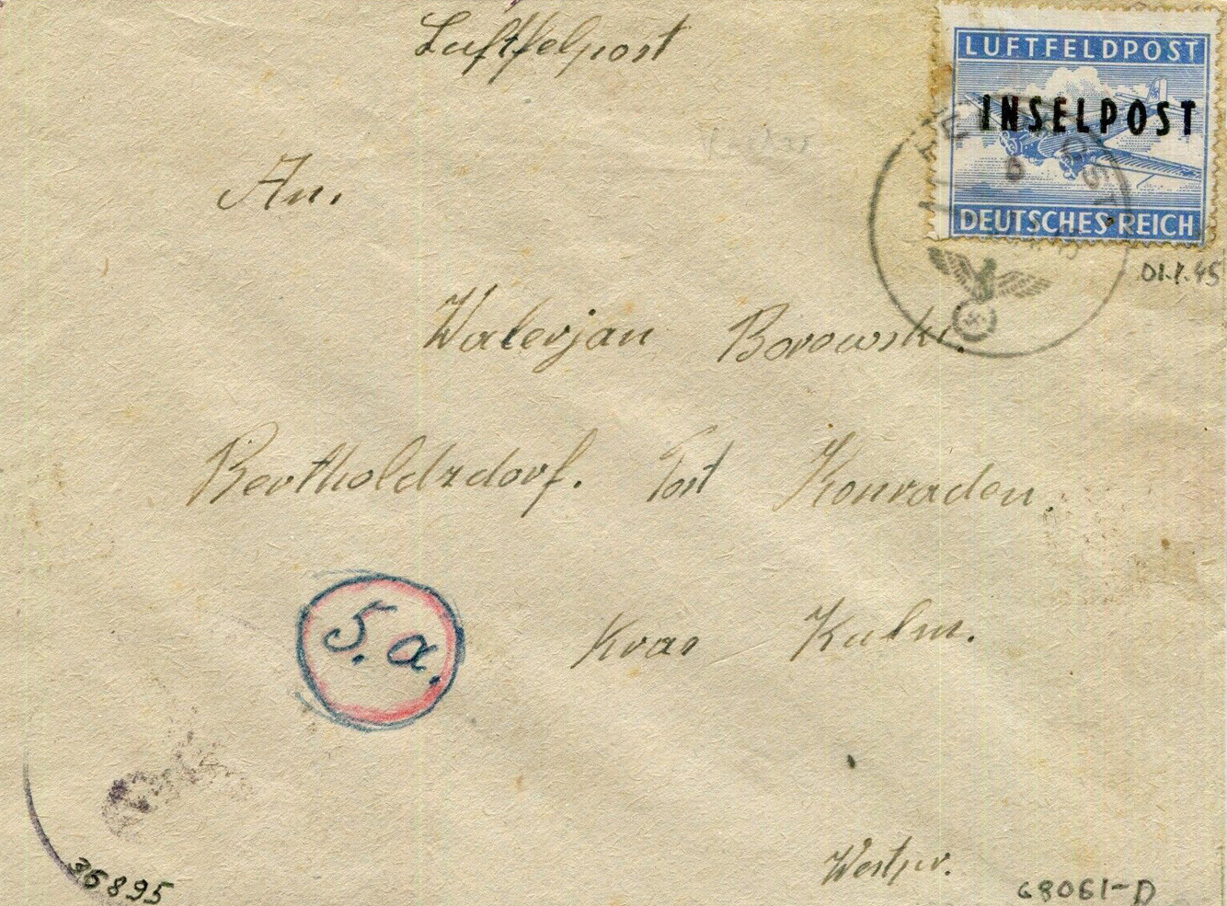 Luftfelpost
LUFTFELDPOST
INSELPOST
DEUTSCHES REICH
01.1.45
An.
Walerjan Borowski.
Bertholdzdorf. Post Konraden.
5.a.
Kras Kulm.
Westpr.
36895
68061-D